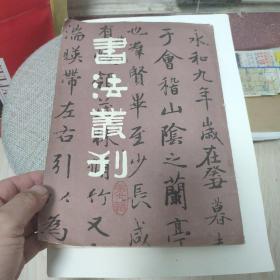 書法叢刊
永和九年歲在癸
暮春
于會稽山陰之蘭亭
也羣賢畢至少長咸
有
領茂林脩竹又
湍暎帶左右引
為